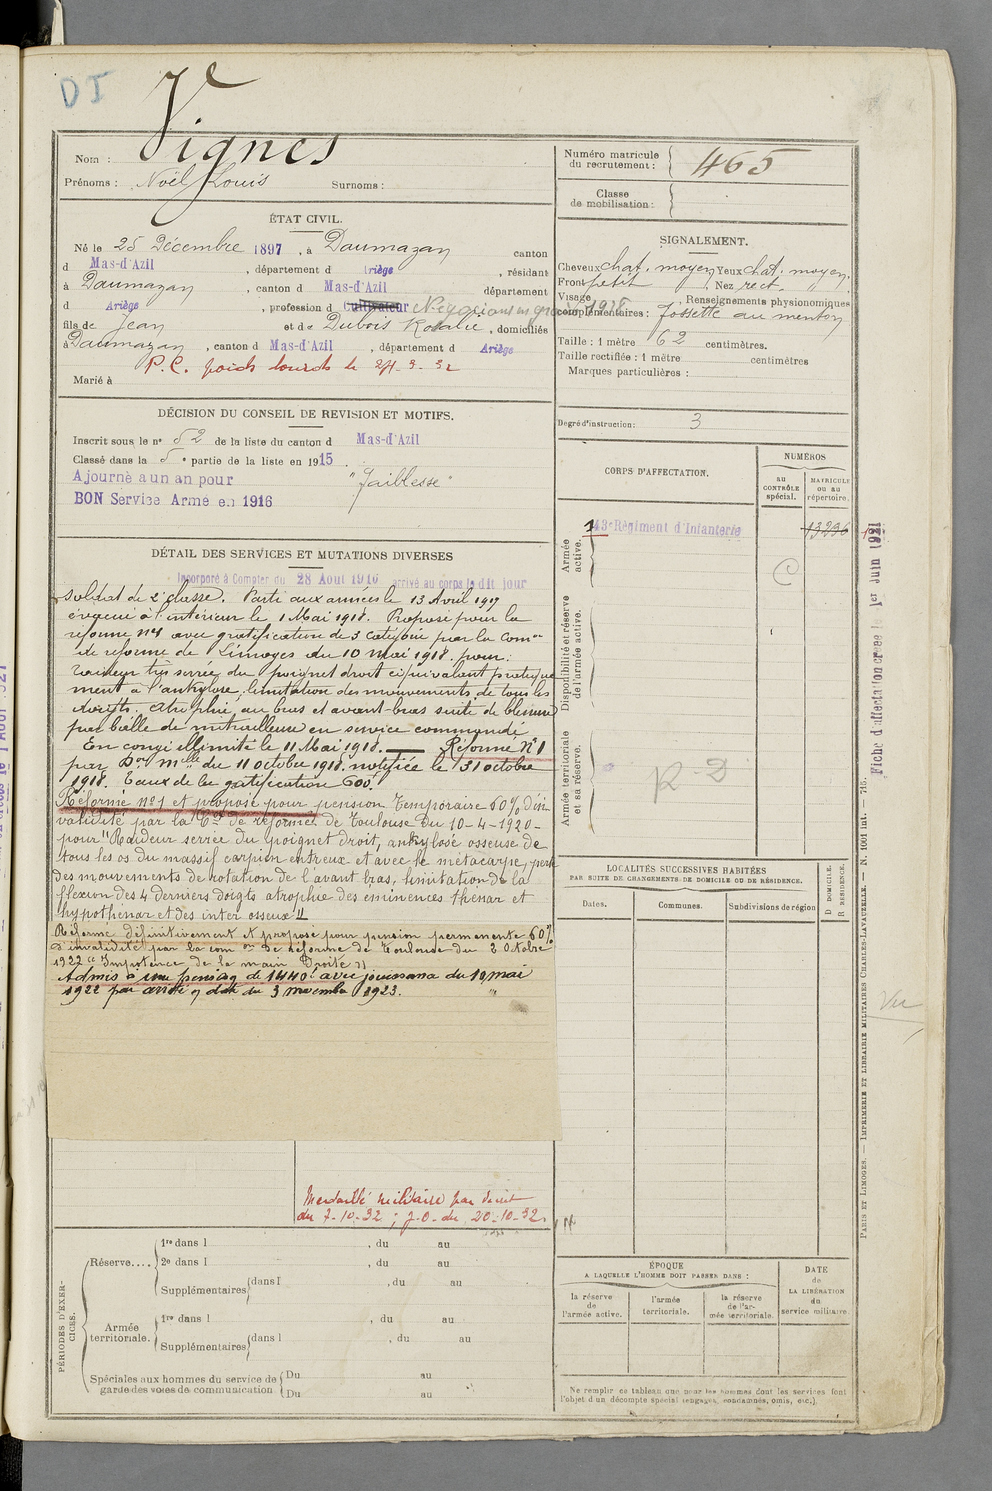 DI
Nom : Vignes
Prénoms : Noël Louis Surnoms :
Numéro matricule du recrutement : 465
Classe de mobilisation :
ÉTAT CIVIL.
Né le 25 Décembre 1897, à Daumazan canton
d Mas-d'Azil, département d Ariège, résidant
à Daumazan, canton d Mas-d'Azil département
d Ariège, profession d cultivateur Négociant en
fils de Jean et de Dubois Rosalie, domiciliés
à Daumazan, canton d Mas-d'Azil, département d Ariège
P.C. poids lourds le 24-3-32
Marié à
SIGNALEMENT.
Cheveux chat. moyen Yeux chat. moyen.
Front petit. Nez rect.
Visage. Renseignements physionomiques
complémentaires : Fossette au menton
Taille : 1 mètre 62 centimètres.
Taille rectifiée : 1 mètre centimètres
Marques particulières :
Degré d'instruction : 3
DÉCISION DU CONSEIL DE REVISION ET MOTIFS.
Inscrit sous le n° 52 de la liste du canton d Mas-d'Azil
Classé dans la 5e partie de la liste en 1915.
Ajourné a un an pour "Faiblesse"
BON Service Armé en 1916
DÉTAIL DES SERVICES ET MUTATIONS DIVERSES
Incorporé à Compter du 28 Août 1916 arrivé au corps le dit jour
soldat de 2e classe. Parti aux armées le 13 Avril 1917
évacué à l'intérieur le 1 Mai 1918. Proposé pour la
réforme n°1 avec gratification de 3 catégorie par la Com°n
de réforme de Limoges du 10 Mai 1918. pour :
raideur très serrée du poignet droit équivalent pratique
ment à l'ankylose, limitation des mouvements de tous les
doigts. Atrophie au bras et avant-bras suite de blessure
par balle de mitrailleuse en service commandé
En congé illimité le 11 Mai 1918. — Réformé N°1
par Don mlle du 11 octobre 1918. notifiée le 31 octobre
1918. Taux de la gratification 600f
Réformé n°1 et proposé pour pension temporaire 60% d'in
validité par la Con de réforme de Toulouse du 10-4-1920-
pour "Raideur serrée du poignet droit, ankylose osseuse de
tous les os du massif carpien entre eux et avec le métacarpe, perte
des mouvements de rotation de l'avant bras, limitation de la
flexion des 4 derniers doigts atrophie des éminences thénar et
hypothénar et des inter osseux"
Réformé définitivement et proposé pour pension permanente 60%
d'invalidité par la com on de réforme de Toulouse du 2 Octobre
1922 "Impotence de la main Droite"
Admis à une pension de 1440f avec jouissance du 12 mai
1922 par arrêté en date du 3 novembre 1923.
Medaillé militaire par decret
du 7-10-32 ; J.O. du 20-10-32
CORPS D'AFFECTATION.
NUMÉROS
AU CONTRÔLE spécial.
MATRICULE ou au répertoire.
Armée active.
143e Régiment d'Infanterie 13236
Disponibilité et réserve de l'armée active.
Armée territoriale et sa réserve.
R-D
Fiche d'affectation créée le 1er Juin 1921
LOCALITÉS SUCCESSIVES HABITÉES
PAR SUITE DE CHANGEMENTS DE DOMICILE OU DE RÉSIDENCE.
Dates. Communes. Subdivisions de région
D DOMICILE.
R RÉSIDENCE.
Vu
PÉRIODES D'EXERCICES.
Réserve.... 1re dans l , du au
2e dans l , du au
Supplémentaires dans l , du au
Armée territoriale. 1re dans l , du au
Supplémentaires dans l , du au
Spéciales aux hommes du service de garde des voies de communication
Du au
Du au
ÉPOQUE
A LAQUELLE L'HOMME DOIT PASSER DANS :
la réserve de l'armée active.
l'armée territoriale.
la réserve de l'armée territoriale.
DATE de LA LIBÉRATION du service militaire.
Ne remplir ce tableau que pour les hommes dont les services font
l'objet d'un décompte spécial (engagés, condamnés, omis, etc.).
PARIS ET LIMOGES. — IMPRIMERIE ET LIBRAIRIE MILITAIRES CHARLES-LAVAUZELLE. — N. 1001 int. — 715.